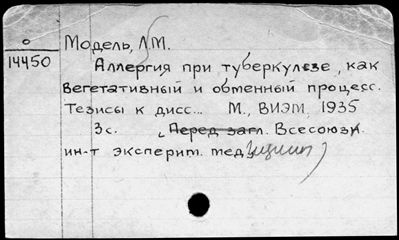 о
14450
Модель, Л.М.
Аллергия при туберкулезе, как
вегетативный и обменный процесс.
Тезисы к дисс... М., ВИЭМ, 1935
3с. (Перед загл. Всесоюзн.
ин-т эксперит. медицины)